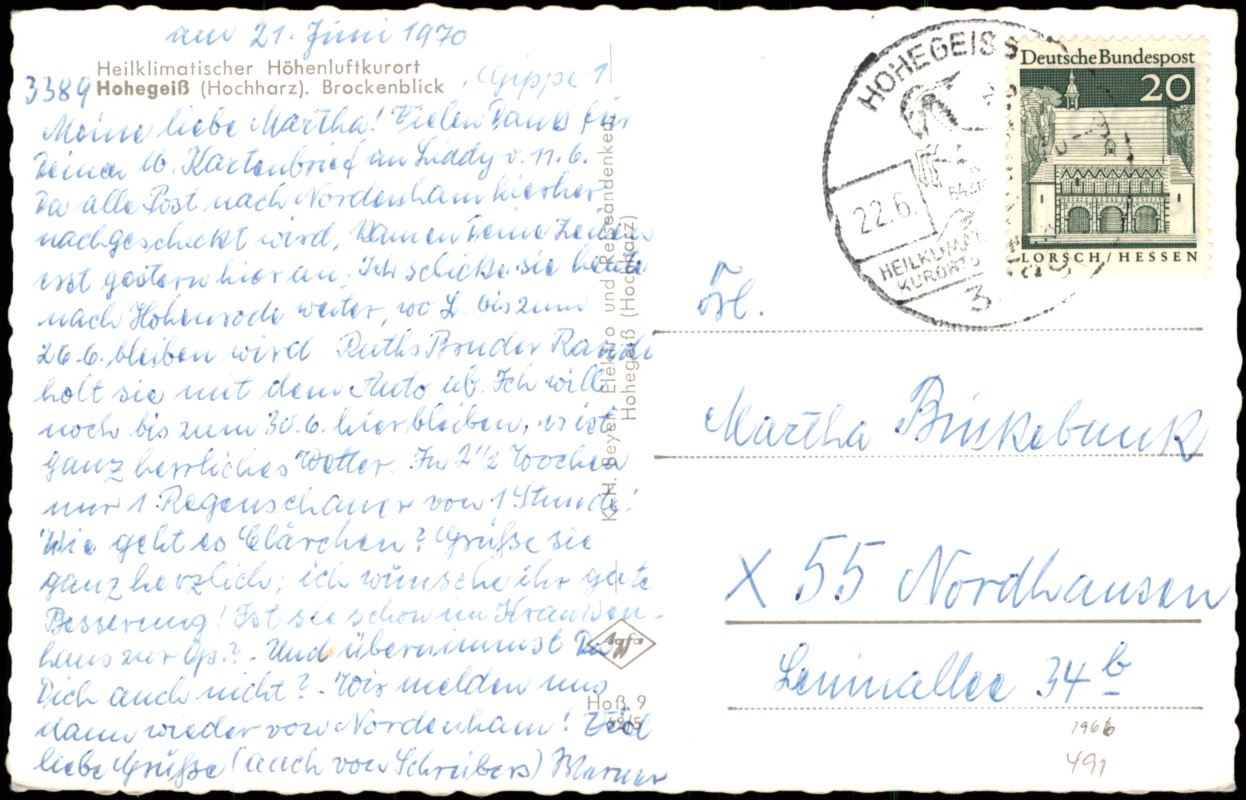 am 21. Juni 1970
Heilklimatischer Höhenluftkurort
3389 Hohegeiß (Hochharz). Brockenblick
Meine liebe Martha! Vielen Dank für
Deinen lb. Kartenbrief an Liddy v. 11.6.
Da alle Post nach Nordenham hierher
nachgeschickt wird, kamen Deine Zeilen
erst gestern hier an. Ich schicke sie heute
nach Hohenrode weiter, wo L. bis zum
26.6. bleiben wird. Ruths Bruder
holt sie mit dem Auto ab. Ich will
noch bis zum 30.6. hierbleiben, es ist
ganz herrliches Wetter. In 2 1/2 Wochen
nur 1 Regenschauer von 1 Stunde!
Wie geht es Clärchen? Grüße sie
ganz herzlich; ich wünsche ihr gute
Besserung! Ist sie schon im Kranken-
haus zur Op.? - Und übernimmst Du
Dich auch nicht? - Wir melden uns
dann wieder von Nordenham! Viel
liebe Grüße (auch von Schreibers)
K. H. Beyer, Elektro und Reiseandenken
Hohegeiß (Hochharz)
Agfa
Hoß 9
HOHEGEISS
22.6.
HEILKLIMAT
KURORT
3
Deutsche Bundespost
20
LORSCH/HESSEN
Frl.
Martha Binkebank
X 55 Nordhausen
Leninallee 34 b
1966
491